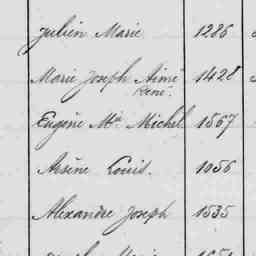 Julien Marie 1286
Marie Joseph Aimé 1428
René.
Eugène Mie Michel 1567
Arsène Louis. 1056
Alexandre Joseph 1535